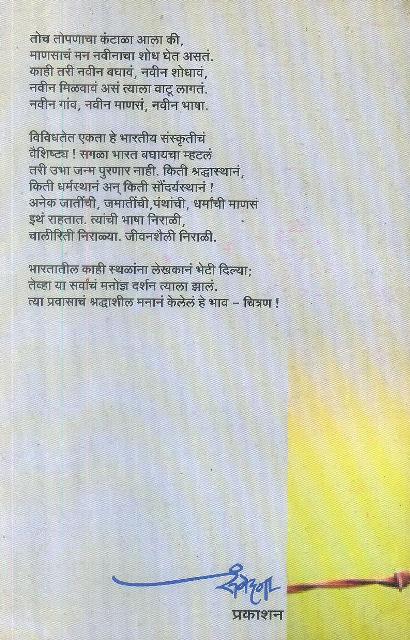 तोच तोपणाचा कंटाळा आला की,
माणसाचं मन नवीनाचा शोध घेत असतं.
काही तरी नवीन बघावं, नवीन शोधावं,
नवीन मिळवावं असं त्याला वाटू लागतं.
नवीन गांव, नवीन माणसं, नवीन भाषा.
विविधतेत एकता हे भारतीय संस्कृतीचं
वैशिष्ट्य ! सगळा भारत बघायचा म्हटलं
तरी उभा जन्म पुरणार नाही. किती श्रद्धास्थानं,
किती धर्मस्थानं अन् किती सौंदर्यस्थानं !
अनेक जातींची, जमातींची,पंथांची, धर्मांची माणसं
इथं राहतात. त्यांची भाषा निराळी,
चालीरिती निराळ्या. जीवनशैली निराळी.
भारतातील काही स्थळांना लेखकानं भेटी दिल्या;
तेव्हा या सर्वांचं मनोज्ञ दर्शन त्याला झालं.
त्या प्रवासाचं श्रद्धाशील मनानं केलेलं हे भाव – चित्रण !
संवेदना
प्रकाशन